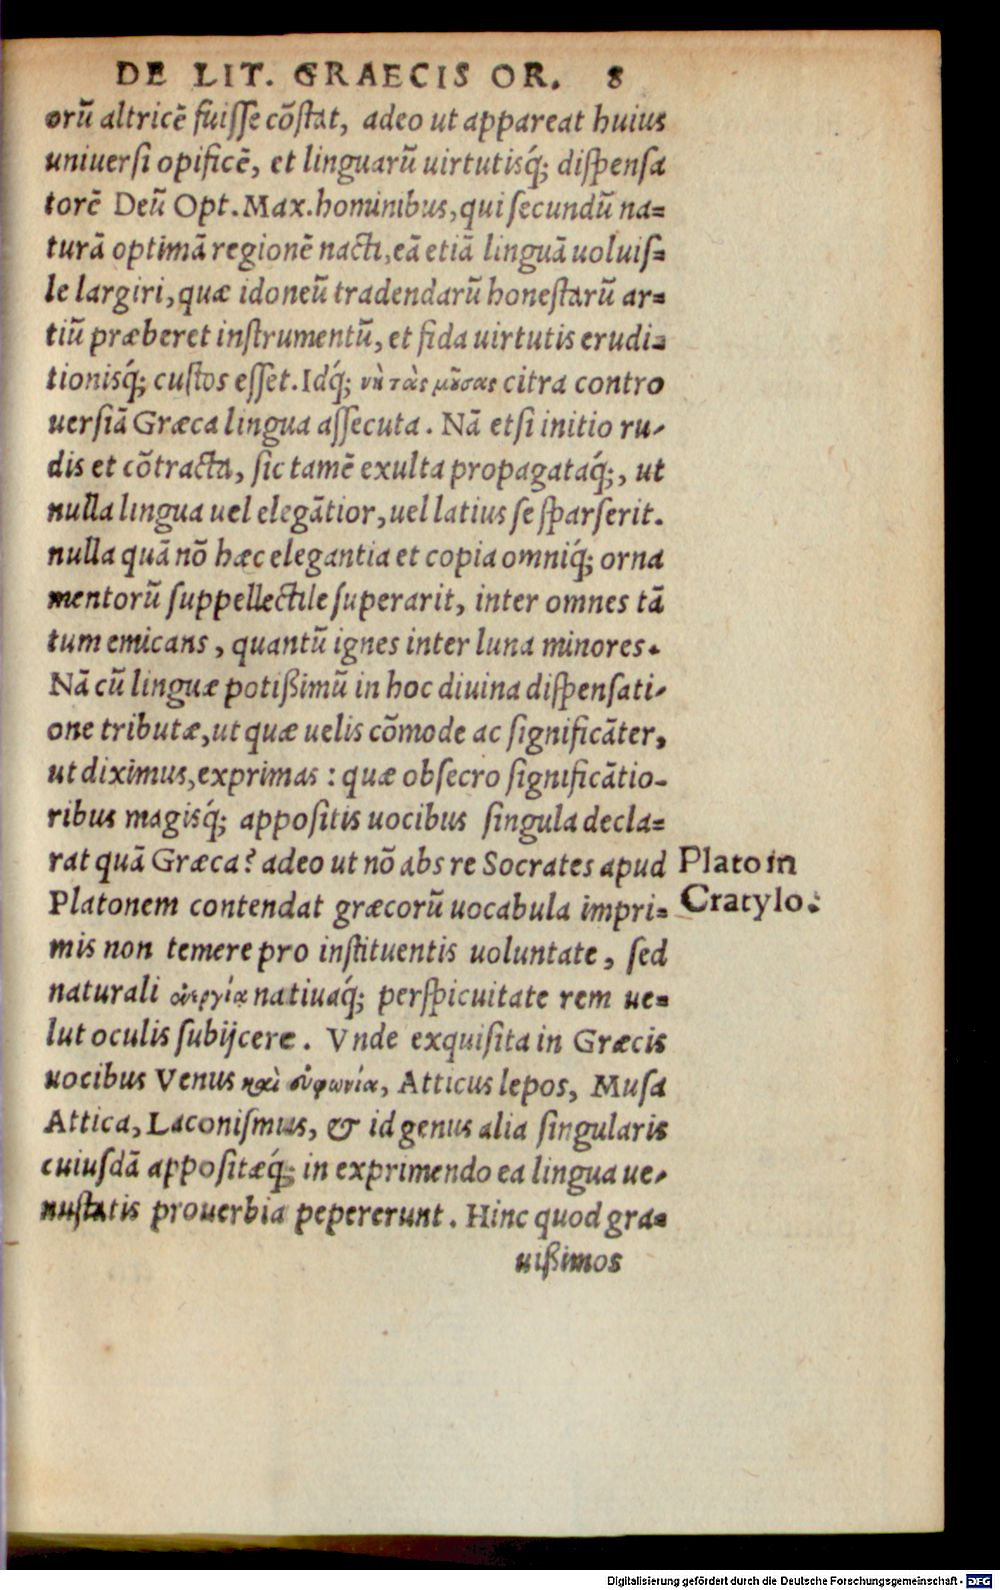 DE LIT. GRAECIS OR. 8
orũ altricẽ fuisse cõstat, adeo ut appareat huius
uniuersi opificẽ, et linguarũ uirtutisq́; dispensa
torẽ Deũ Opt. Max. hominibus, qui secundũ na=
turã optimã regionẽ nacti, eã etiã linguã uoluis=
le largiri, quæ idoneũ tradendarũ honestarũ ar=
tiũ præberet instrumentũ, et fida uirtutis erudi=
tionisq́; custos esset. Idq́; νὴ τὰς μούσας citra contro
uersiã Græca lingua assecuta. Nã etsi initio ru-
dis et cõtracta, sic tamẽ exulta propagataq́;, ut
nulla lingua uel elegãtior, uel latius se sparserit.
nulla quã nõ hæc elegantia et copia omniq́; orna
mentorũ suppellectile superarit, inter omnes tã
tum emicans, quantũ ignes inter luna minores.
Nã cũ linguæ potißimũ in hoc diuina dispensati-
one tributæ, ut quæ uelis cõmode ac significãter,
ut diximus, exprimas : quæ obsecro significãtio-
ribus magisq́; appositis uocibus singula decla=
rat quã Græca? adeo ut nõ abs re Socrates apud
Platonem contendat græcorũ uocabula impri=
mis non temere pro instituentis uoluntate, sed
naturali ἐνεργία natiuaq́; perspicuitate rem ue=
lut oculis subijcere. Vnde exquisita in Græcis
uocibus Venus καὶ εὐφωνία, Atticus lepos, Musa
Attica, Laconismus, & id genus alia singularis
cuiusdã appositæq́; in exprimendo ea lingua ue-
nustatis prouerbia pepererunt. Hinc quod gra=
uißimos
Plato in
Cratylo.
Digitalisierung gefördert durch die Deutsche Forschungsgemeinschaft - DFG